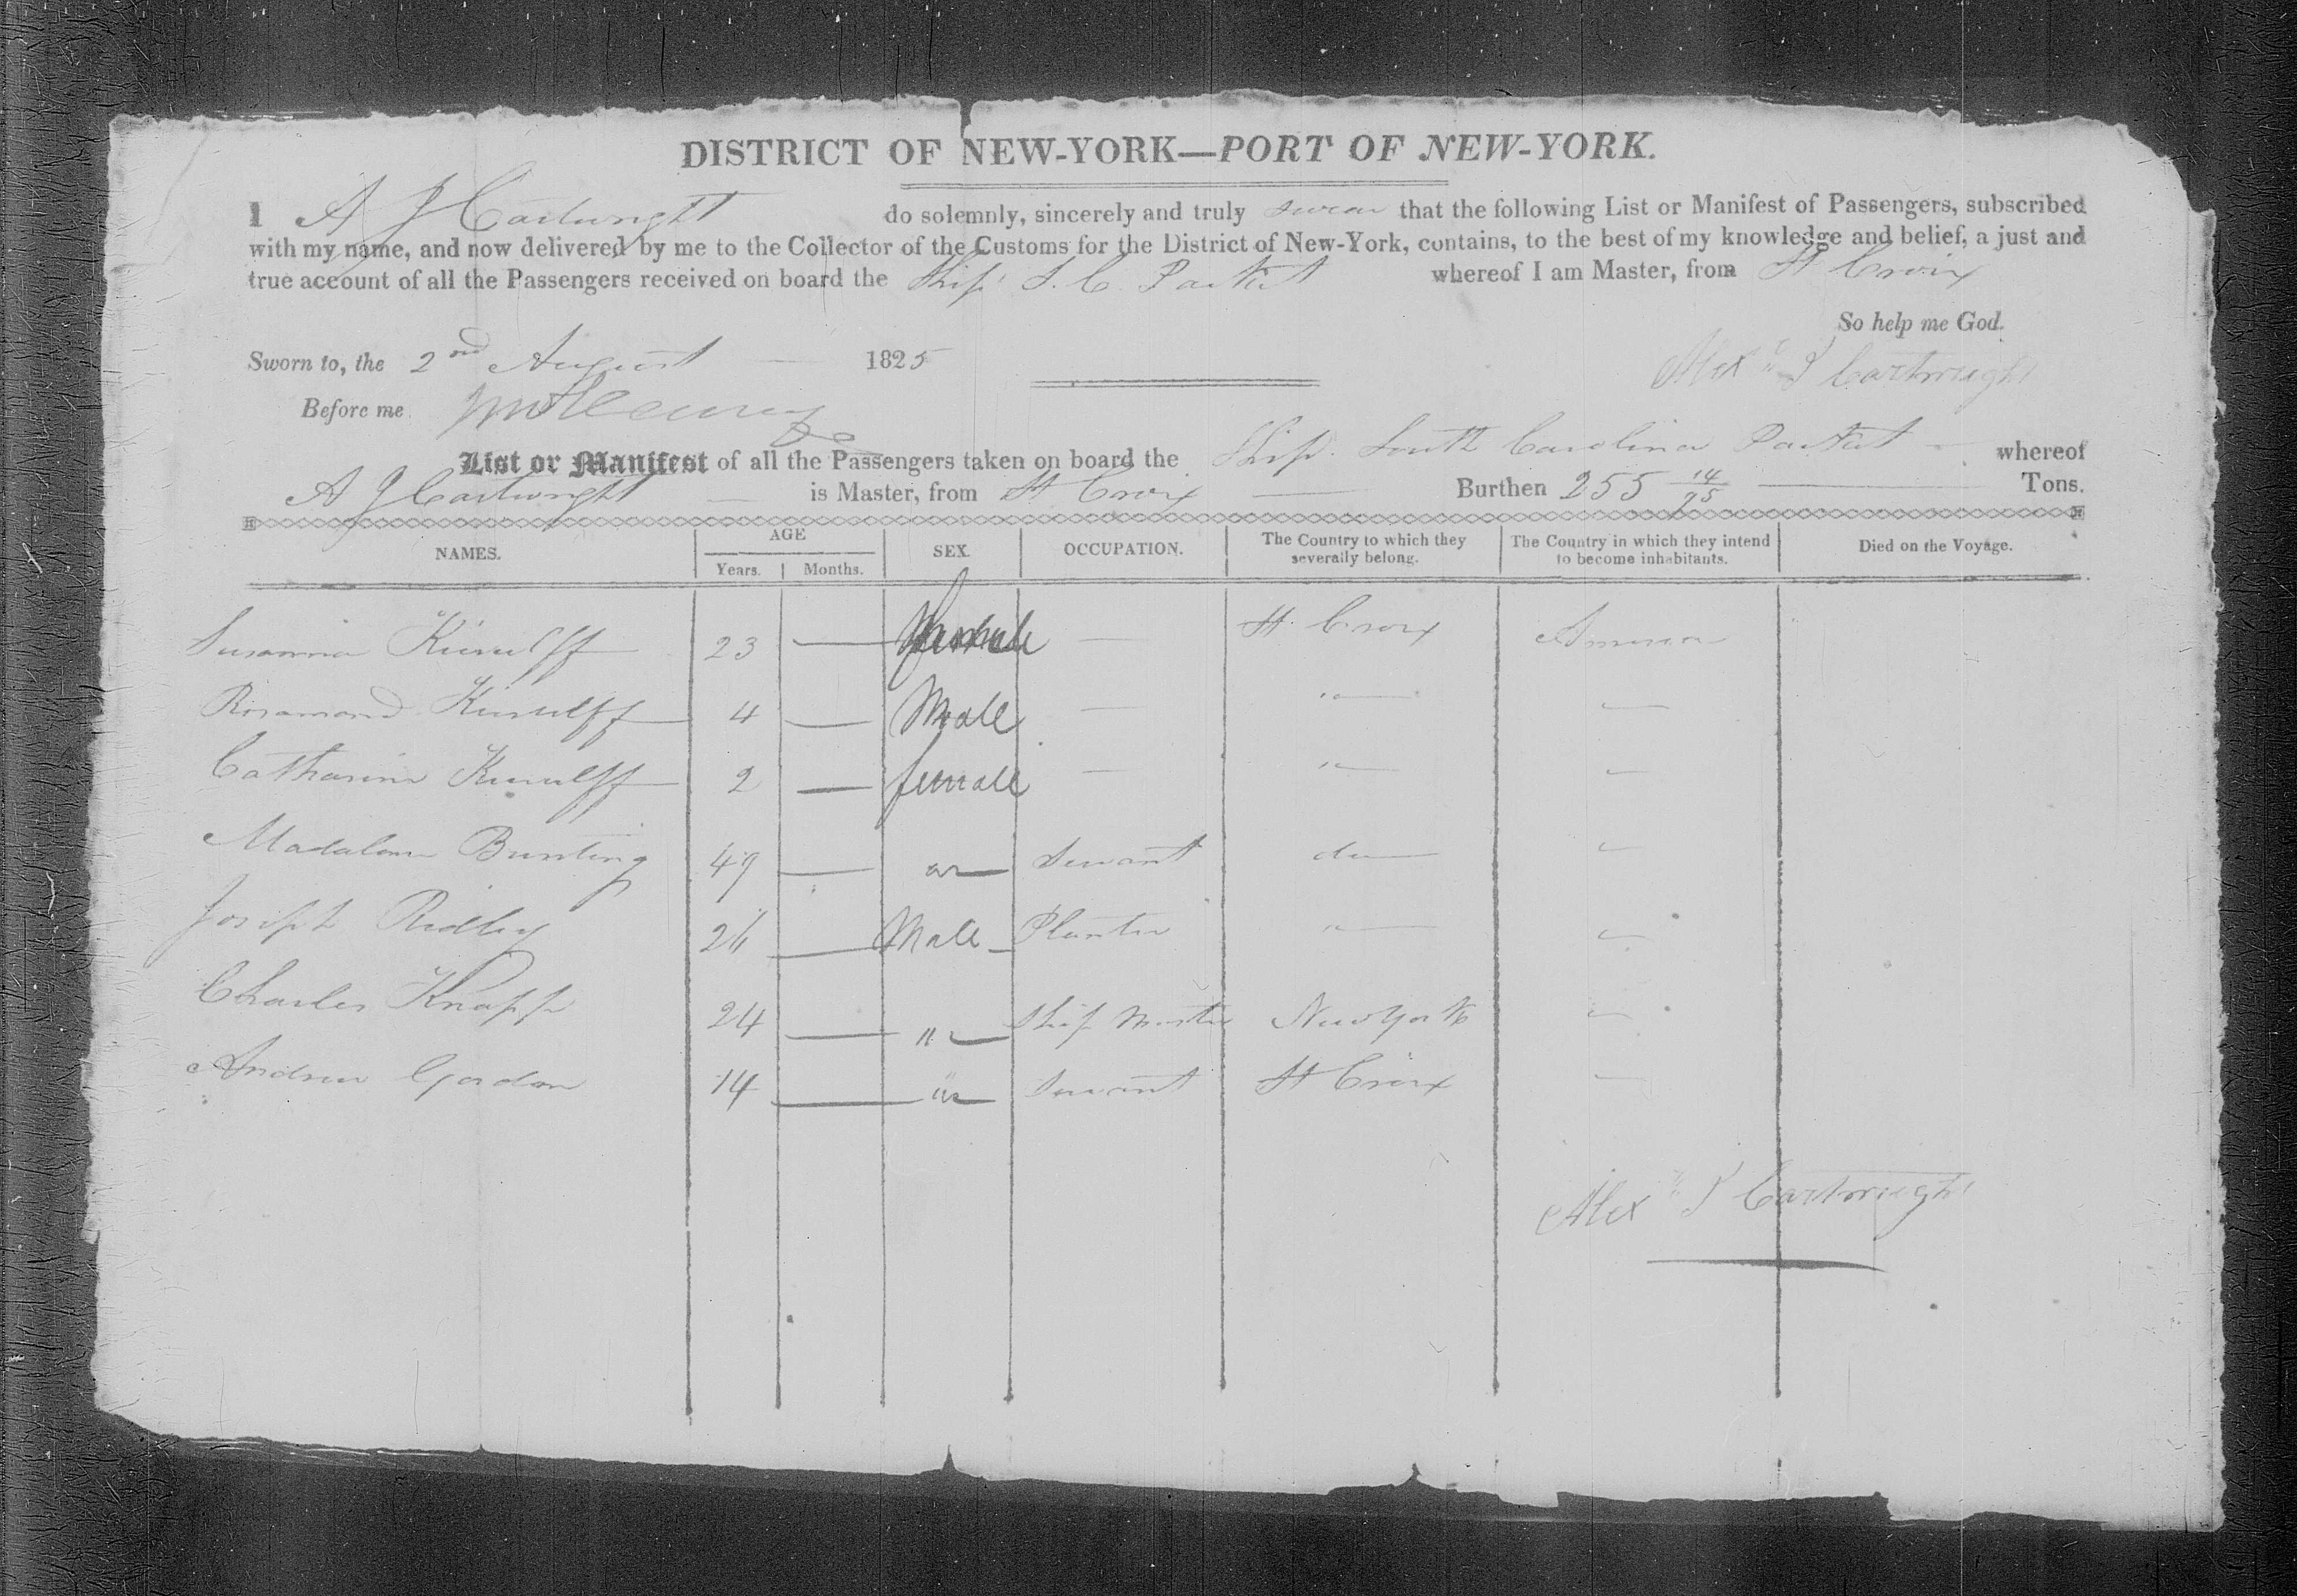 DISTRICT OF NEW-YORK—PORT OF NEW-YORK.
I A J Cartwright do solemnly, sincerely and truly swear that the following List or Manifest of Passengers, subscribed
with my name, and now delivered by me to the Collector of the Customs for the District of New-York, contains, to the best of my knowledge and belief, a just and
true account of all the Passengers received on board the Ship S. C. Packet whereof I am Master, from St Croix
So help me God.
Sworn to, the 2nd August 1825
Alexr J Cartwright
Before me
List or Manifest of all the Passengers taken on board the Ship South Carolina Packet whereof
A J Cartwright is Master, from St Croix Burthen 255 14/95 Tons.
NAMES. AGE Years. Months. SEX. OCCUPATION. The Country to which they severally belong. The Country in which they intend to become inhabitants. Died on the Voyage.
Susanna 23 — female — St. Croix America
Rosamond 4 — Male — " —
Catharine 2 — female — " —
Bunting 49 — Servant do —
Joseph Ridley 26 — Male Planter " —
Charles Knapp 24 — " Ship Master New York "
Andrew Gordon 14 — " Servant St Croix —
Alexr J Cartwright